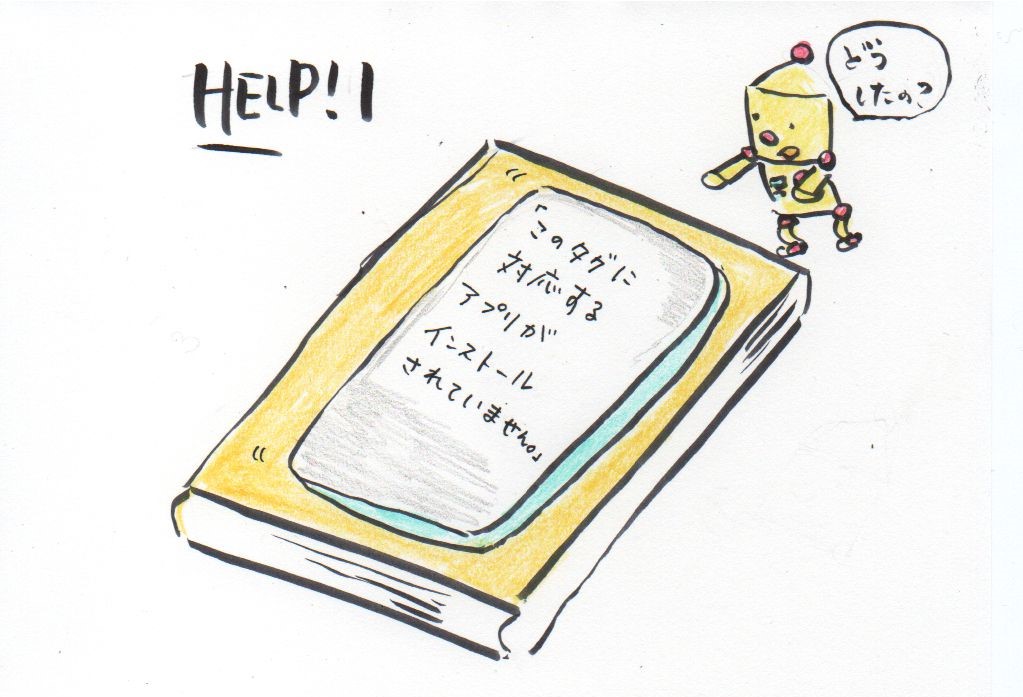 HELP!!
どう
したの?
「このタグに
対応する
アプリが
インストール
されていません。」